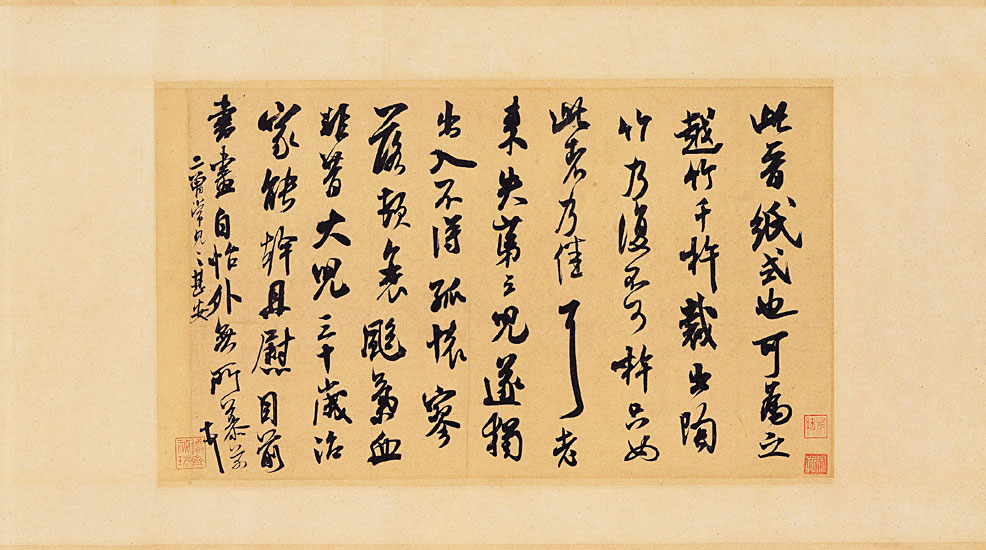 此晉紙式也可為之
越竹千杵裁出陶
竹乃復不可杵只如
此者乃佳耳老
来失第三兒遂獨
出入不得孤懷寥
落頓衰颼氣血
非昔大兒三十歲治
家能幹且慰目前
書畫自怡外無所慕芾
二曾常見之甚安